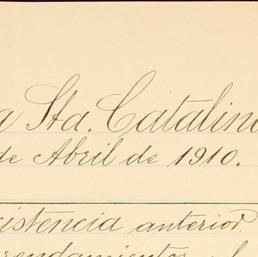 a Sta. Catalina
de Abril de 1910.
xistencia anterior
rrendamientos